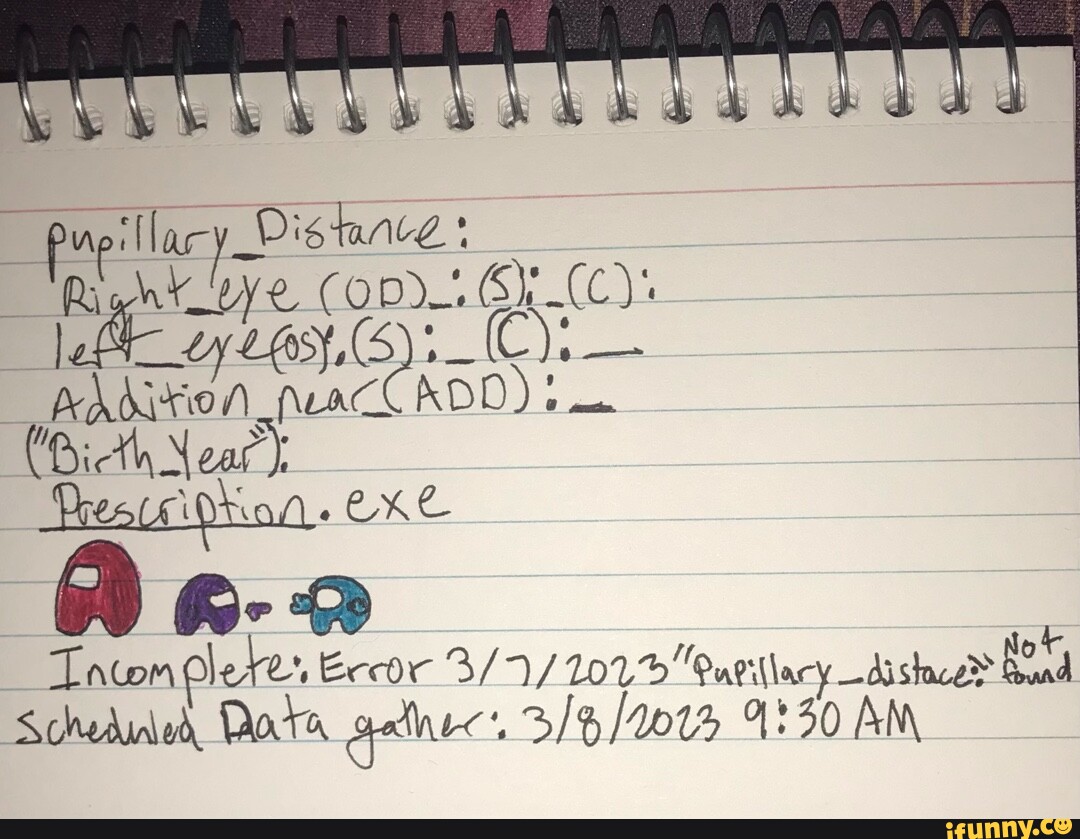 pupillary_Distance:
Right_eye (OD)_: (S):_(C):
left_eye(os):(S):_(C):_
Addition_near_(ADD):_
("Birth_Year"):
Prescription.exe
Incomplete: Error 3/7/2023 "Pupillary_distace:" Not found
Scheduled Data gather: 3/8/2023 9:30 AM
ifunny.co